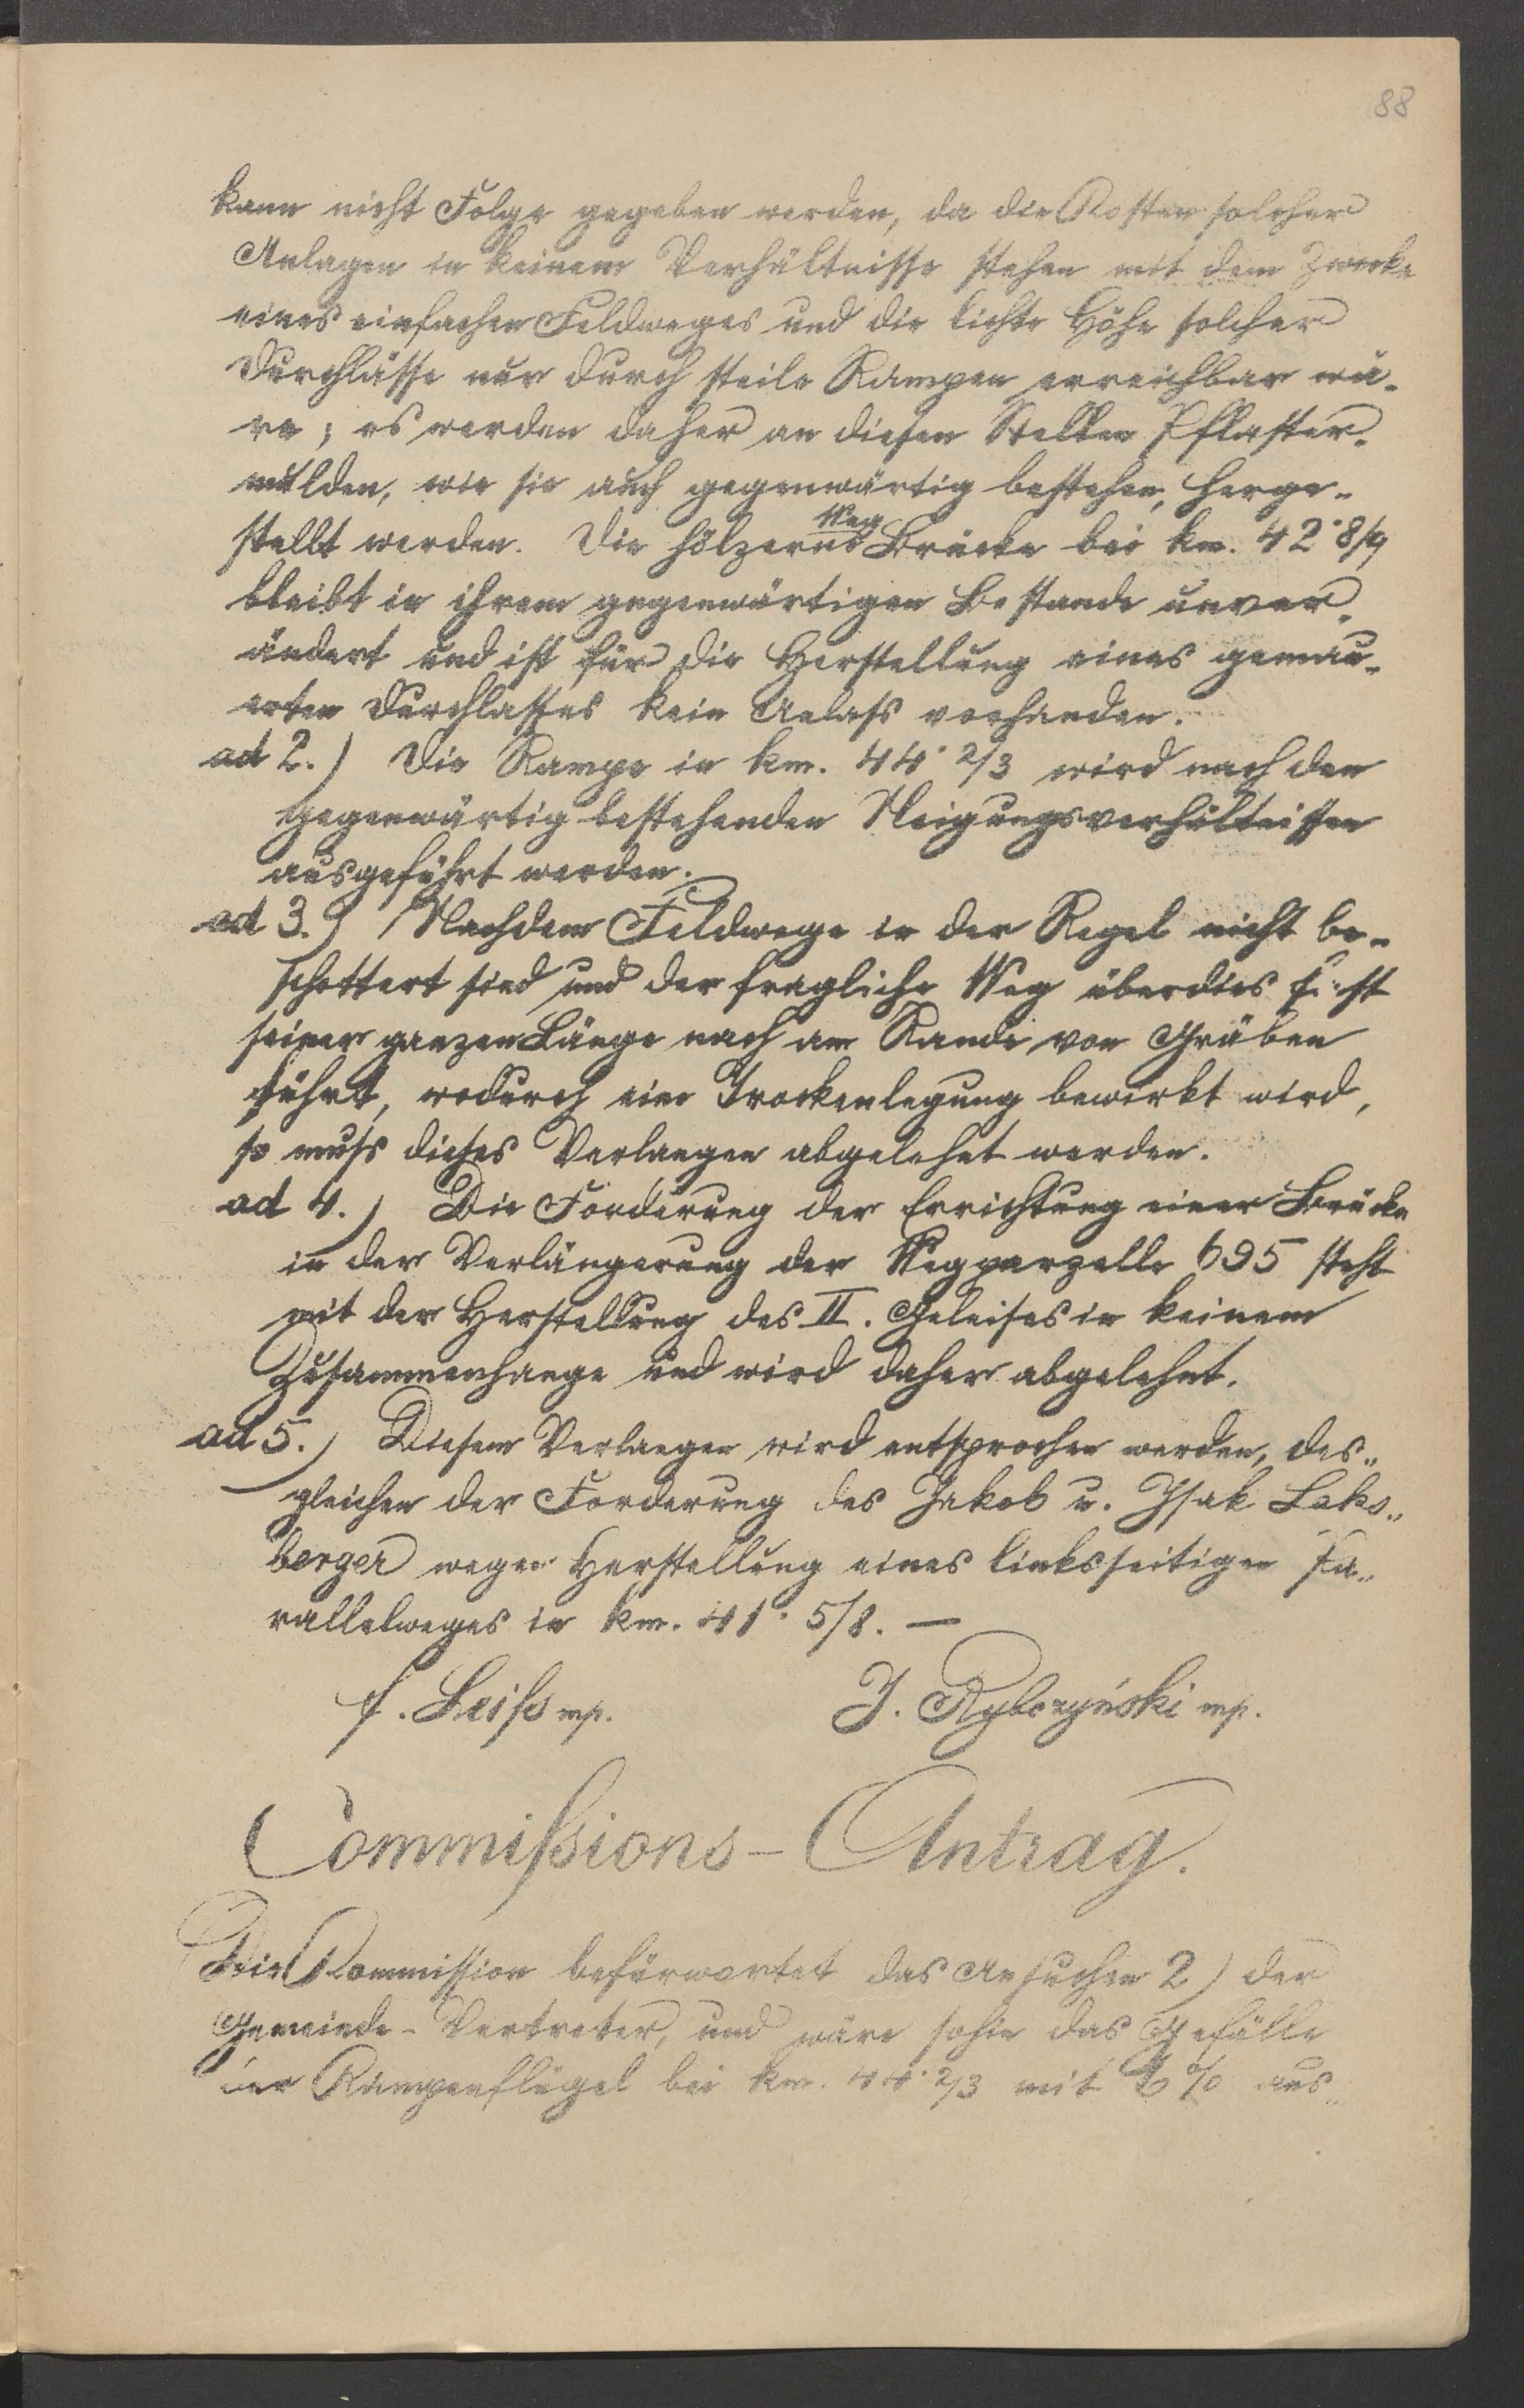 88
kann nicht Folge gegeben werden, da die Kosten solcher
Anlagen in keinem Verhältnisse stehen mit dem Zwecke
eines einfachen Feldweges und die lichte Höhe solcher
Durchlässe nur durch steile Rampen erreichbar wä-
re; es werden daher an diesen Stellen Pflaster-
mulden, wie sie auch gegenwärtig bestehen, herge-
Weg
stellt werden. Die hölzerne Brücke bei km. 42·8/9
bleibt in ihrem gegenwärtigen Bestande unver-
ändert und ist für die Herstellung eines gemau-
erten Durchlasses kein Anlass vorhanden.
ad 2.) Die Rampe in km. 44·2/3 wird nach den
gegenwärtig bestehenden Neigungsverhältnissen
ausgeführt werden.
ad 3.) Nachdem Feldwege in der Regel nicht be-
schottert sind und der fragliche Weg überdies fast
seiner ganzen Länge nach am Rande von Gräben
führt, wodurch eine Trockenlegung bewirkt wird,
so muss dieses Verlangen abgelehnt werden.
ad 4.) Die Forderung der Errichtung einer Brücke
in der Verlängerung der Wegparzelle 695 steht
mit der Herstellung des II. Geleises in keinem
Zusammenhange und wird daher abgelehnt.
ad 5.) Diesem Verlangen wird entsprochen werden, des-
gleichen der Forderung des Jakob u. Isak Laks-
berger wegen Herstellung eines linksseitigen Pa-
rallelweges in km. 41·5/8. —
f. Leiß mp. J. Rybczyński mp.
Commißions-Antrag.
Die Commission befürwortet das Ansuchen 2) der
Gemeinde-Vertreter, und wäre sohin das Gefälle
der Rampenflügel bei km. 44·2/3 mit % aus-